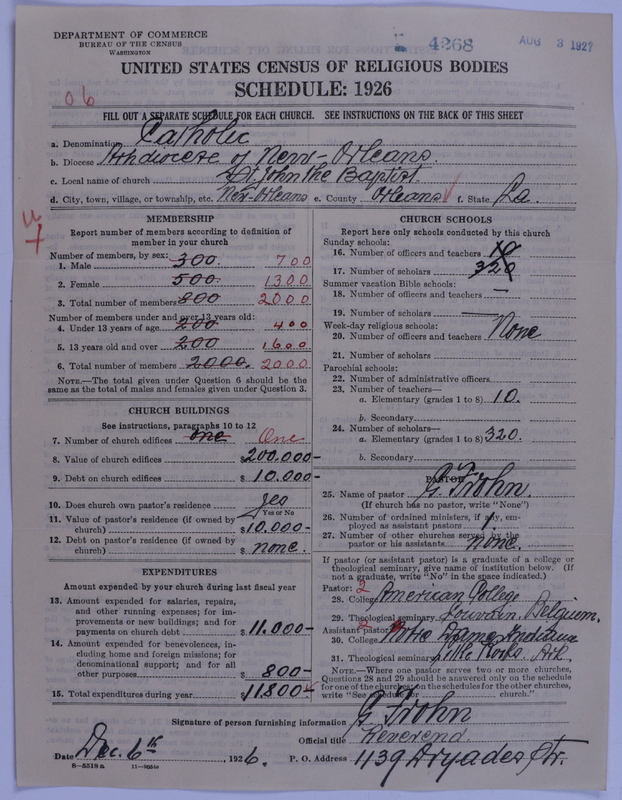 DEPARTMENT OF COMMERCE
BUREAU OF THE CENSUS
WASHINGTON
4268
AUG 3 1927
UNITED STATES CENSUS OF RELIGIOUS BODIES
SCHEDULE: 1926
06
FILL OUT A SEPARATE SCHEDULE FOR EACH CHURCH. SEE INSTRUCTIONS ON THE BACK OF THIS SHEET
a. Denomination Catholic
b. Diocese Archdiocese of New-Orleans.
c. Local name of church St John the Baptist
d. City, town, village, or township, etc. New-Orleans e. County Orleans f. State La.
MEMBERSHIP
Report number of members according to definition of
member in your church
Number of members, by sex:
1. Male 300. 700
2. Female 500. 1300
3. Total number of members 800 2000
Number of members under and over 13 years old:
4. Under 13 years of age 200 400
5. 13 years old and over 200 1600
6. Total number of members 2000. 2000
NOTE.—The total given under Question 6 should be the
same as the total of males and females given under Question 3.
CHURCH BUILDINGS
See instructions, paragraphs 10 to 12
7. Number of church edifices one One
8. Value of church edifices $200.000-
9. Debt on church edifices $ 10.000-
10. Does church own pastor's residence yes
Yes or No
11. Value of pastor's residence (if owned by
church) $10.000-
12. Debt on pastor's residence (if owned by
church) $ none.
EXPENDITURES
Amount expended by your church during last fiscal year
13. Amount expended for salaries, repairs,
and other running expenses; for im-
provements or new buildings; and for
payments on church debt $11.000-
14. Amount expended for benevolences, in-
cluding home and foreign missions; for
denominational support; and for all
other purposes $ 800-
15. Total expenditures during year $11800.
CHURCH SCHOOLS
Report here only schools conducted by this church
Sunday schools:
16. Number of officers and teachers 10
17. Number of scholars 320
Summer vacation Bible schools:
18. Number of officers and teachers —
19. Number of scholars —
Week-day religious schools:
20. Number of officers and teachers None
21. Number of scholars
Parochial schools:
22. Number of administrative officers
23. Number of teachers—
a. Elementary (grades 1 to 8) 10.
b. Secondary
24. Number of scholars—
a. Elementary (grades 1 to 8) 320.
b. Secondary
PASTOR
25. Name of pastor G. Frohn.
(If church has no pastor, write "None")
26. Number of ordained ministers, if any, em-
ployed as assistant pastors 1.
27. Number of other churches served by the
pastor or his assistants None.
If pastor (or assistant pastor) is a graduate of a college or
theological seminary, give name of institution below. (If
not a graduate, write "No" in the space indicated.)
Pastor: 2
28. College American College
29. Theological seminary Louvain, Belgium.
Assistant pastor: 2
30. College Notre Dame Indiana
31. Theological seminary Little Rock, Ark.
NOTE.—Where one pastor serves two or more churches,
Questions 28 and 29 should be answered only on the schedule
for one of the churches; on the schedules for the other churches,
write "See schedule for church."
Signature of person furnishing information G Frohn
Official title Reverend.
Date Dec. 6th, 1926. P. O. Address 1139 Dryades Str.
8-5518 a 11-9554